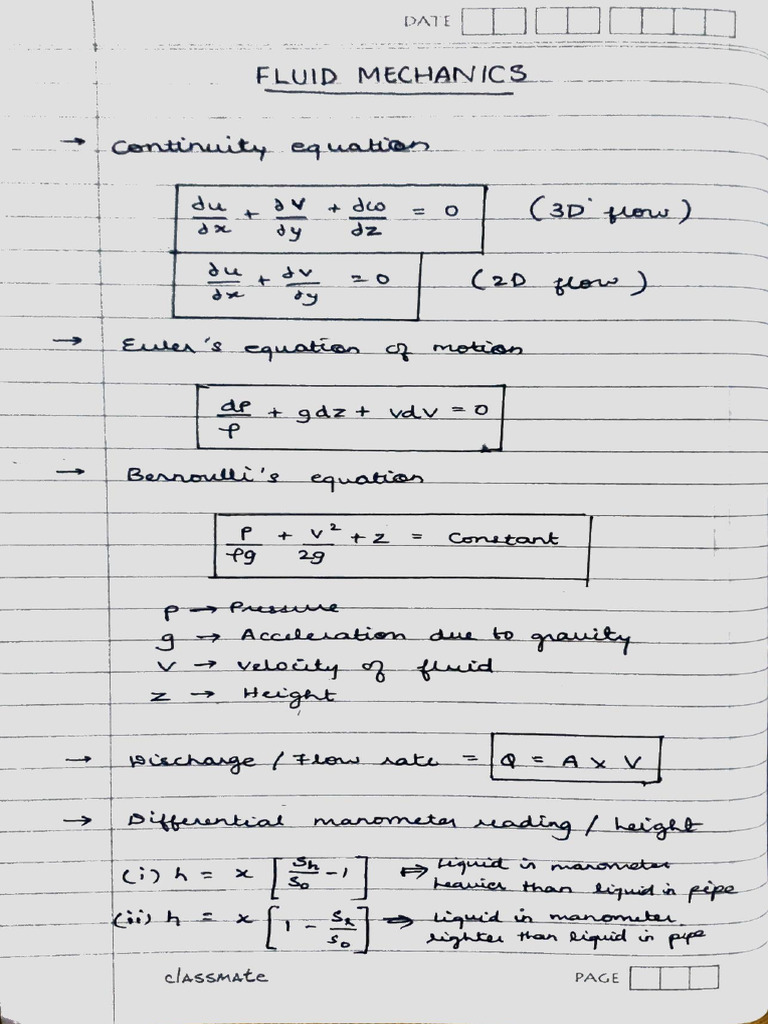 DATE
FLUID MECHANICS
→ Continuity equation
∂u/∂x + ∂v/∂y + ∂ω/∂z = 0 (3D flow)
∂u/∂x + ∂v/∂y = 0 (2D flow)
→ Euler's equation of motion
dp/ρ + gdz + vdv = 0
→ Bernoulli's equation
P/ρg + v²/2g + z = Constant
P → Pressure
g → Acceleration due to gravity
v → velocity of fluid
z → Height
→ Discharge / Flow rate = Q = A x V
→ Differential manometer reading / height
(i) h = x [Sh/So - 1] ⇒ liquid in manometer
heavier than liquid in pipe
(ii) h = x [1 - Sl/So] ⇒ liquid in manometer
lighter than liquid in pipe
classmate PAGE